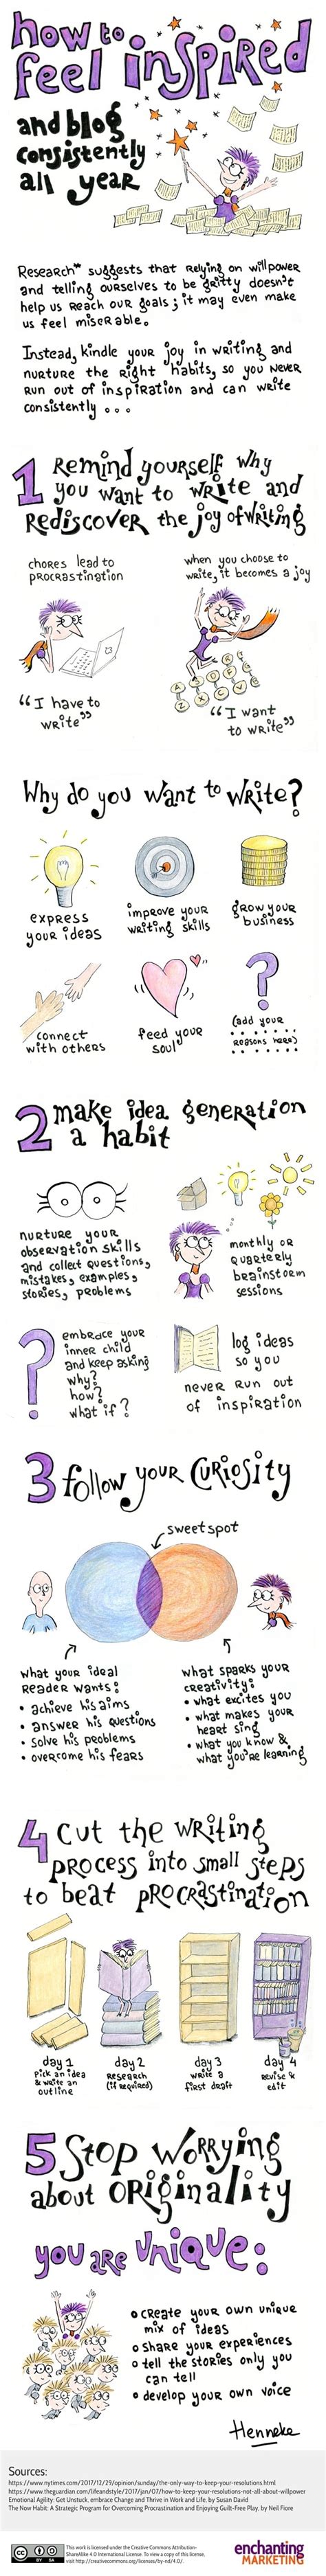 how to
feel inspired
and blog
consistently
all year
Research* suggests that relying on willpower
and telling ourselves to be gritty doesn't
help us reach our goals; it may even make
us feel miserable.
Instead, kindle your joy in writing and
nurture the right habits, so you never
run out of inspiration and can write
consistently ...
1 Remind yourself why
you want to write and
rediscover the joy of writing
chores lead to
procrastination
when you choose to
write, it becomes a joy
A S D F R
Z X C V G
"I have to
write"
"I want
to write"
Why do you want to write?
express
your ideas
improve your
writing skills
grow your
business
connect
with others
feed your
soul
?
(add your
reasons here)
2 make idea generation
a habit
nurture your
observation skills
and collect questions,
mistakes, examples,
stories, problems
monthly or
quarterly
brainstorm
sessions
?
embrace your
inner child
and keep asking
why?
how?
what if?
log ideas
so you
never run out
of inspiration
3 follow your curiosity
sweet spot
what your ideal
reader wants:
• achieve his aims
• answer his questions
• solve his problems
• overcome his fears
what sparks your
creativity:
• what excites you
• what makes your
heart sing
• what you know &
what you're learning
4 Cut the writing
process into small steps
to beat procrastination
day 1
pick an idea
& write an
outline
day 2
research
(if required)
day 3
write a
first draft
day 4
revise &
edit
5 Stop worrying
about originality
you are unique:
• create your own unique
mix of ideas
• share your experiences
• tell the stories only you
can tell
• develop your own voice
Henneke
Sources:
https://www.nytimes.com/2017/12/29/opinion/sunday/the-only-way-to-keep-your-resolutions.html
https://www.theguardian.com/lifeandstyle/2017/jan/07/how-to-keep-your-resolutions-not-all-about-willpower
Emotional Agility: Get Unstuck, embrace Change and Thrive in Work and Life, by Susan David
The Now Habit: A Strategic Program for Overcoming Procrastination and Enjoying Guilt-Free Play, by Neil Fiore
cc BY SA
This work is licensed under the Creative Commons Attribution-
ShareAlike 4.0 International License. To view a copy of this license,
visit http://creativecommons.org/licenses/by-nd/4.0/.
enchanting
MARKETING